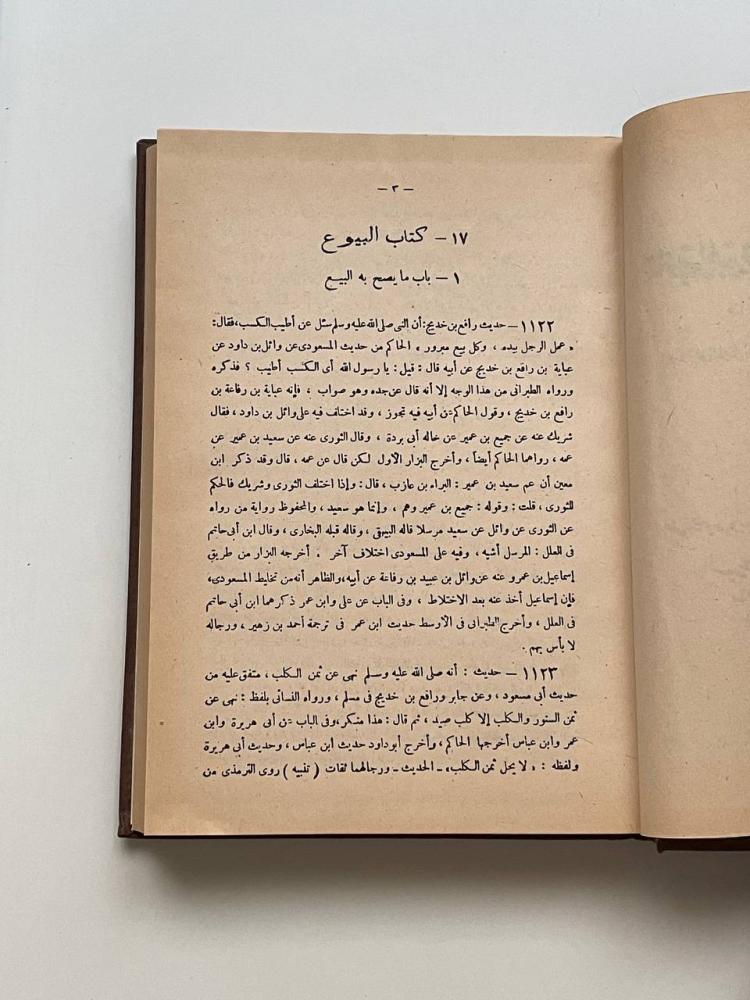 — ٣ —
١٧ — كتاب البيوع
١ — باب ما يصح به البيع
١١٢٢ — حديث رافع بن خديج: أن النبي صلى الله عليه وسلم سئل عن أطيب الكسب، فقال:
« عمل الرجل بيده، وكل بيع مبرور » الحاكم من حديث المسعودى عن وائل بن داود عن
عباية بن رافع بن خديج عن أبيه قال : قيل : يا رسول الله أى الكسب أطيب ؟ فذكره
ورواه الطبرانى من هذا الوجه إلا أنه قال عن جده وهو صواب ، فإنه عباية بن رفاعة بن
رافع بن خديج ، وقول الحاكم عن أبيه فيه تجوز ، وقد اختلف فيه على وائل بن داود ، فقال
شريك عنه عن جميع بن عمير عن خاله أبى بردة ، وقال الثورى عنه عن سعيد بن عمير عن
عمه ، رواهما الحاكم أيضاً ، وأخرج البزار الأول لكن قال عن عمه ، قال وقد ذكر ابن
معين أن عم سعيد بن عمير : البراء بن عازب ، قال : وإذا اختلف الثورى وشريك فالحكم
للثورى ، قلت : وقوله : جميع بن عمير وهم ، وإنما هو سعيد ، والمحفوظ رواية من رواه
عن الثورى عن وائل عن سعيد مرسلا قاله البيهقى ، وقاله قبله البخارى ، وقال ابن أبى حاتم
فى العلل : المرسل أشبه ، وفيه على المسعودى اختلاف آخر . أخرجه البزار من طريق
إسماعيل بن عمرو عنه عن وائل بن عبيد بن رفاعة عن أبيه، والظاهر أنه من تخليط المسعودى،
فإن إسماعيل أخذ عنه بعد الاختلاط ، وفى الباب عن على وابن عمر ذكرهما ابن أبى حاتم
فى العلل ، وأخرج الطبرانى فى الأوسط حديث ابن عمر فى ترجمة أحمد بن زهير ، ورجاله
لا بأس بهم .
١١٢٣ — حديث : أنه صلى الله عليه وسلم نهى عن ثمن الكلب ، متفق عليه من
حديث أبى مسعود ، وعن جابر ورافع بن خديج فى مسلم ، ورواه النسائى بلفظ : نهى عن
ثمن السنور والكلب إلا كلب صيد ، ثم قال : هذا منكر، وفى الباب عن أبى هريرة وابن
عمر وابن عباس أخرجها الحاكم ، وأخرج أبو داود حديث ابن عباس ، وحديث أبى هريرة
ولفظه : « لا يحل ثمن الكلب» ـ الحديث ـ ورجالهما ثقات ( تنبيه ) روى الترمذى من